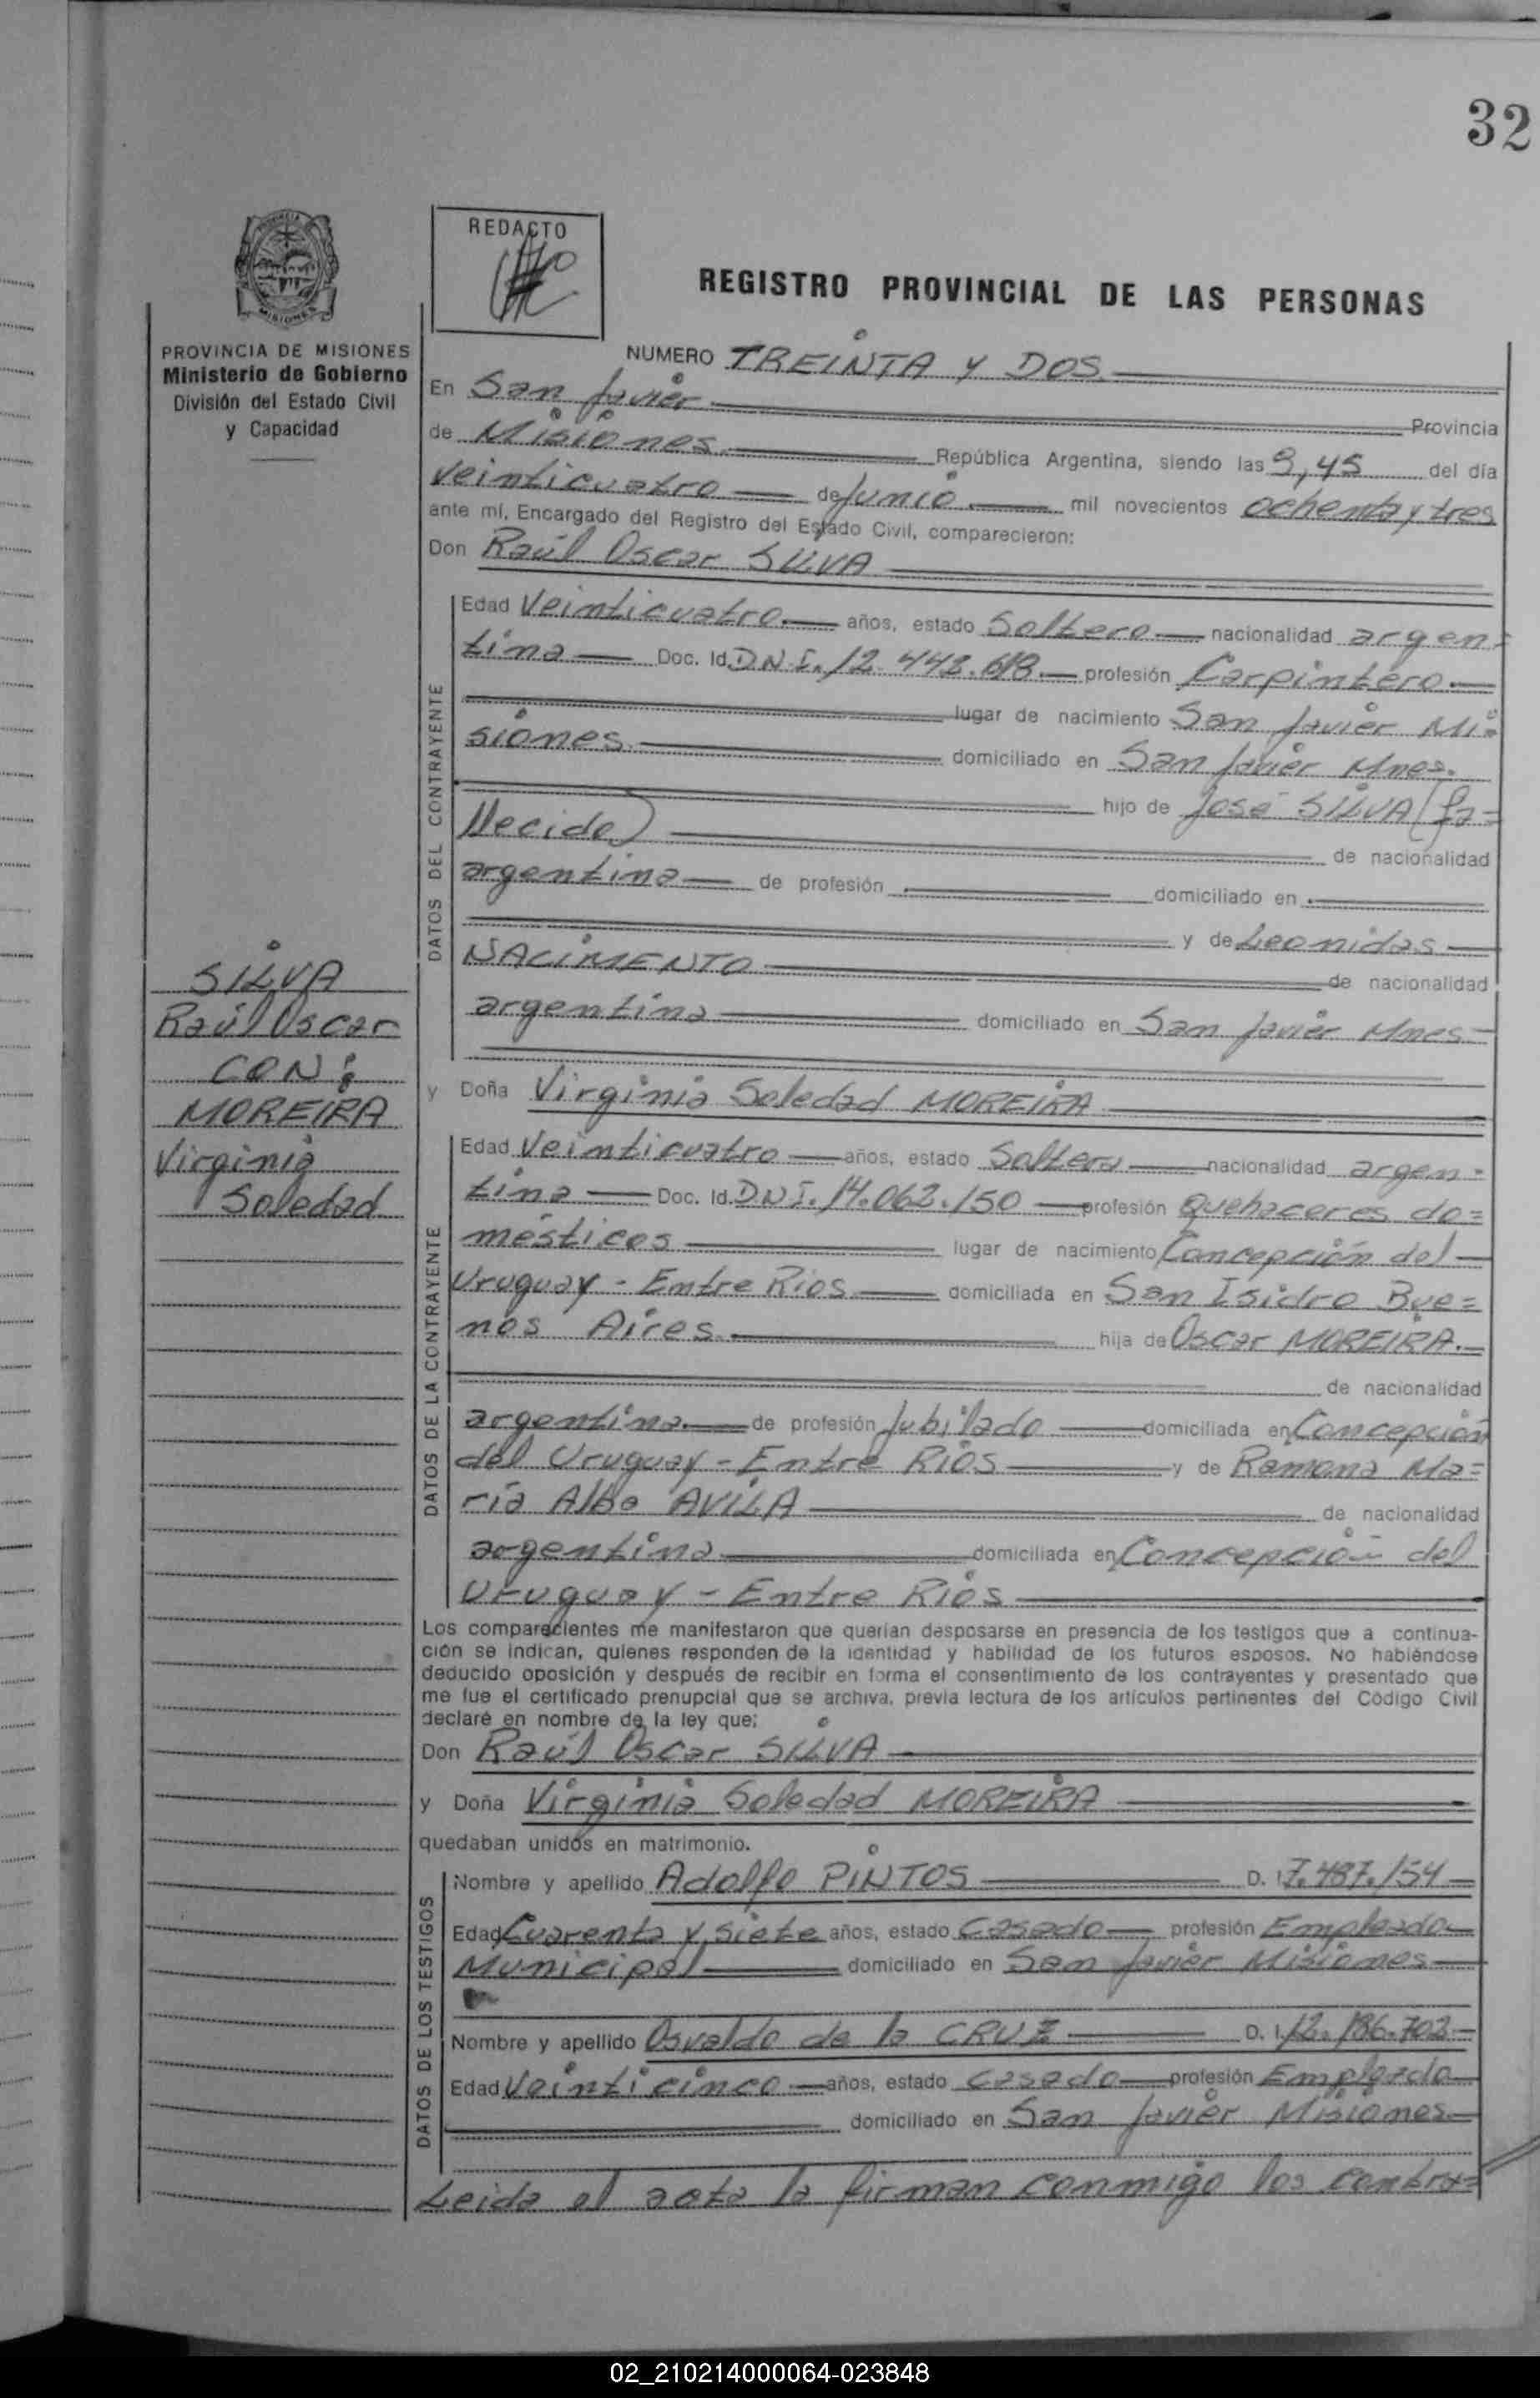 32
REDACTO
REGISTRO PROVINCIAL DE LAS PERSONAS
PROVINCIA DE MISIONES
Ministerio de Gobierno
División del Estado Civil
y Capacidad
SILVA
Raúl Oscar
CON:
MOREIRA
Virginia
Soledad
NUMERO TREINTA Y DOS
En San Javier Provincia
de Misiones República Argentina, siendo las 9,45 del día
veinticuatro de Junio mil novecientos ochenta y tres
ante mí, Encargado del Registro del Estado Civil, comparecieron:
Don Raúl Oscar SILVA
DATOS DEL CONTRAYENTE
Edad Veinticuatro años, estado Soltero nacionalidad argen=
tina Doc. Id. D.N.I. 12.448.618 profesión Carpintero
lugar de nacimiento San Javier Mi=
siones domiciliado en San Javier Mnes.
hijo de José SILVA (fa=
llecido) de nacionalidad
argentina de profesión domiciliado en
y de Leonidas
NACIMENTO de nacionalidad
argentina domiciliado en San Javier Mnes
y Doña Virginia Soledad MOREIRA
DATOS DE LA CONTRAYENTE
Edad Veinticuatro años, estado Soltera nacionalidad argen=
tina Doc. Id. DNI. 14.062.150 profesión Quehaceres do=
mésticos lugar de nacimiento Concepción del
Uruguay - Entre Rios domiciliada en San Isidro Bue=
nos Aires hija de Oscar MOREIRA.
de nacionalidad
argentina de profesión Jubilado domiciliada en Concepción
del Uruguay - Entre Rios y de Ramona Ma=
ría Alba AVILA de nacionalidad
argentina domiciliada en Concepción del
Uruguay - Entre Rios
Los comparecientes me manifestaron que querían desposarse en presencia de los testigos que a continua-
ción se indican, quienes responden de la identidad y habilidad de los futuros esposos. No habiéndose
deducido oposición y después de recibir en forma el consentimiento de los contrayentes y presentado que
me fue el certificado prenupcial que se archiva, previa lectura de los artículos pertinentes del Código Civil
declaré en nombre de la ley que:
Don Raúl Oscar SILVA
y Doña Virginia Soledad MOREIRA
quedaban unidos en matrimonio.
DATOS DE LOS TESTIGOS
Nombre y apellido Adolfo PINTOS D. I. 7.487.154
Edad Cuarenta y siete años, estado Casado profesión Empleado
Municipal domiciliado en San Javier Misiones
Nombre y apellido Osvaldo de la CRUZ D. I. 12.186.702
Edad Veinticinco años, estado Casado profesión Empleado
domiciliado en San Javier Misiones
Leida el acta la firman conmigo los contra=
02_210214000064-023848